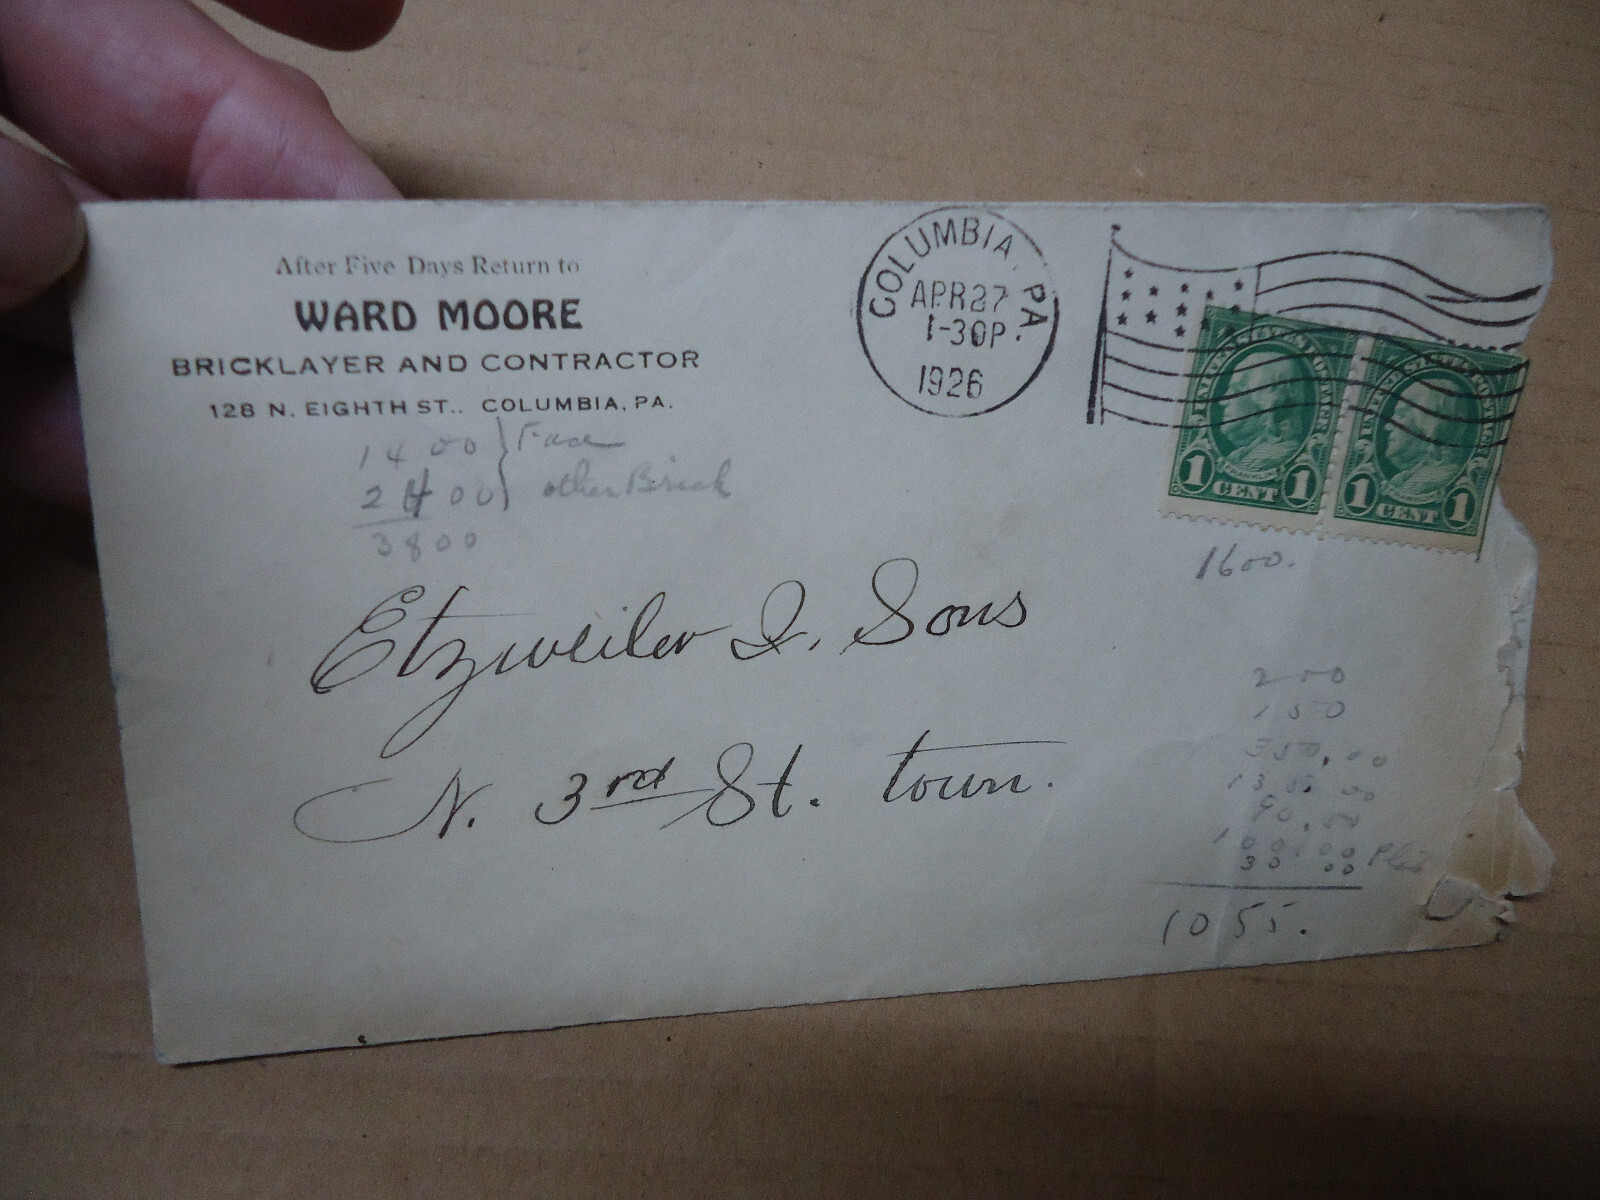 After Five Days Return to
WARD MOORE
BRICKLAYER AND CONTRACTOR
128 N. EIGHTH ST., COLUMBIA, PA.
COLUMBIA, PA.
APR 27
1-30P.
1926
UNITED STATES POSTAGE
FRANKLIN
1 CENT 1
UNITED STATES POSTAGE
FRANKLIN
1 CENT 1
1400 } Face
2400 } other Brick
3800
1600.
Etzweiler & Sons
N. 3rd St. town.
200
150
350.00
30.00
1055.